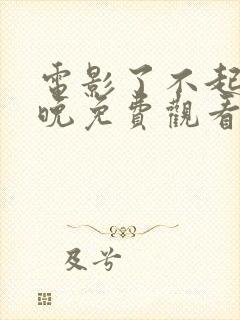 電影了不起
晚免費觀看
及兮